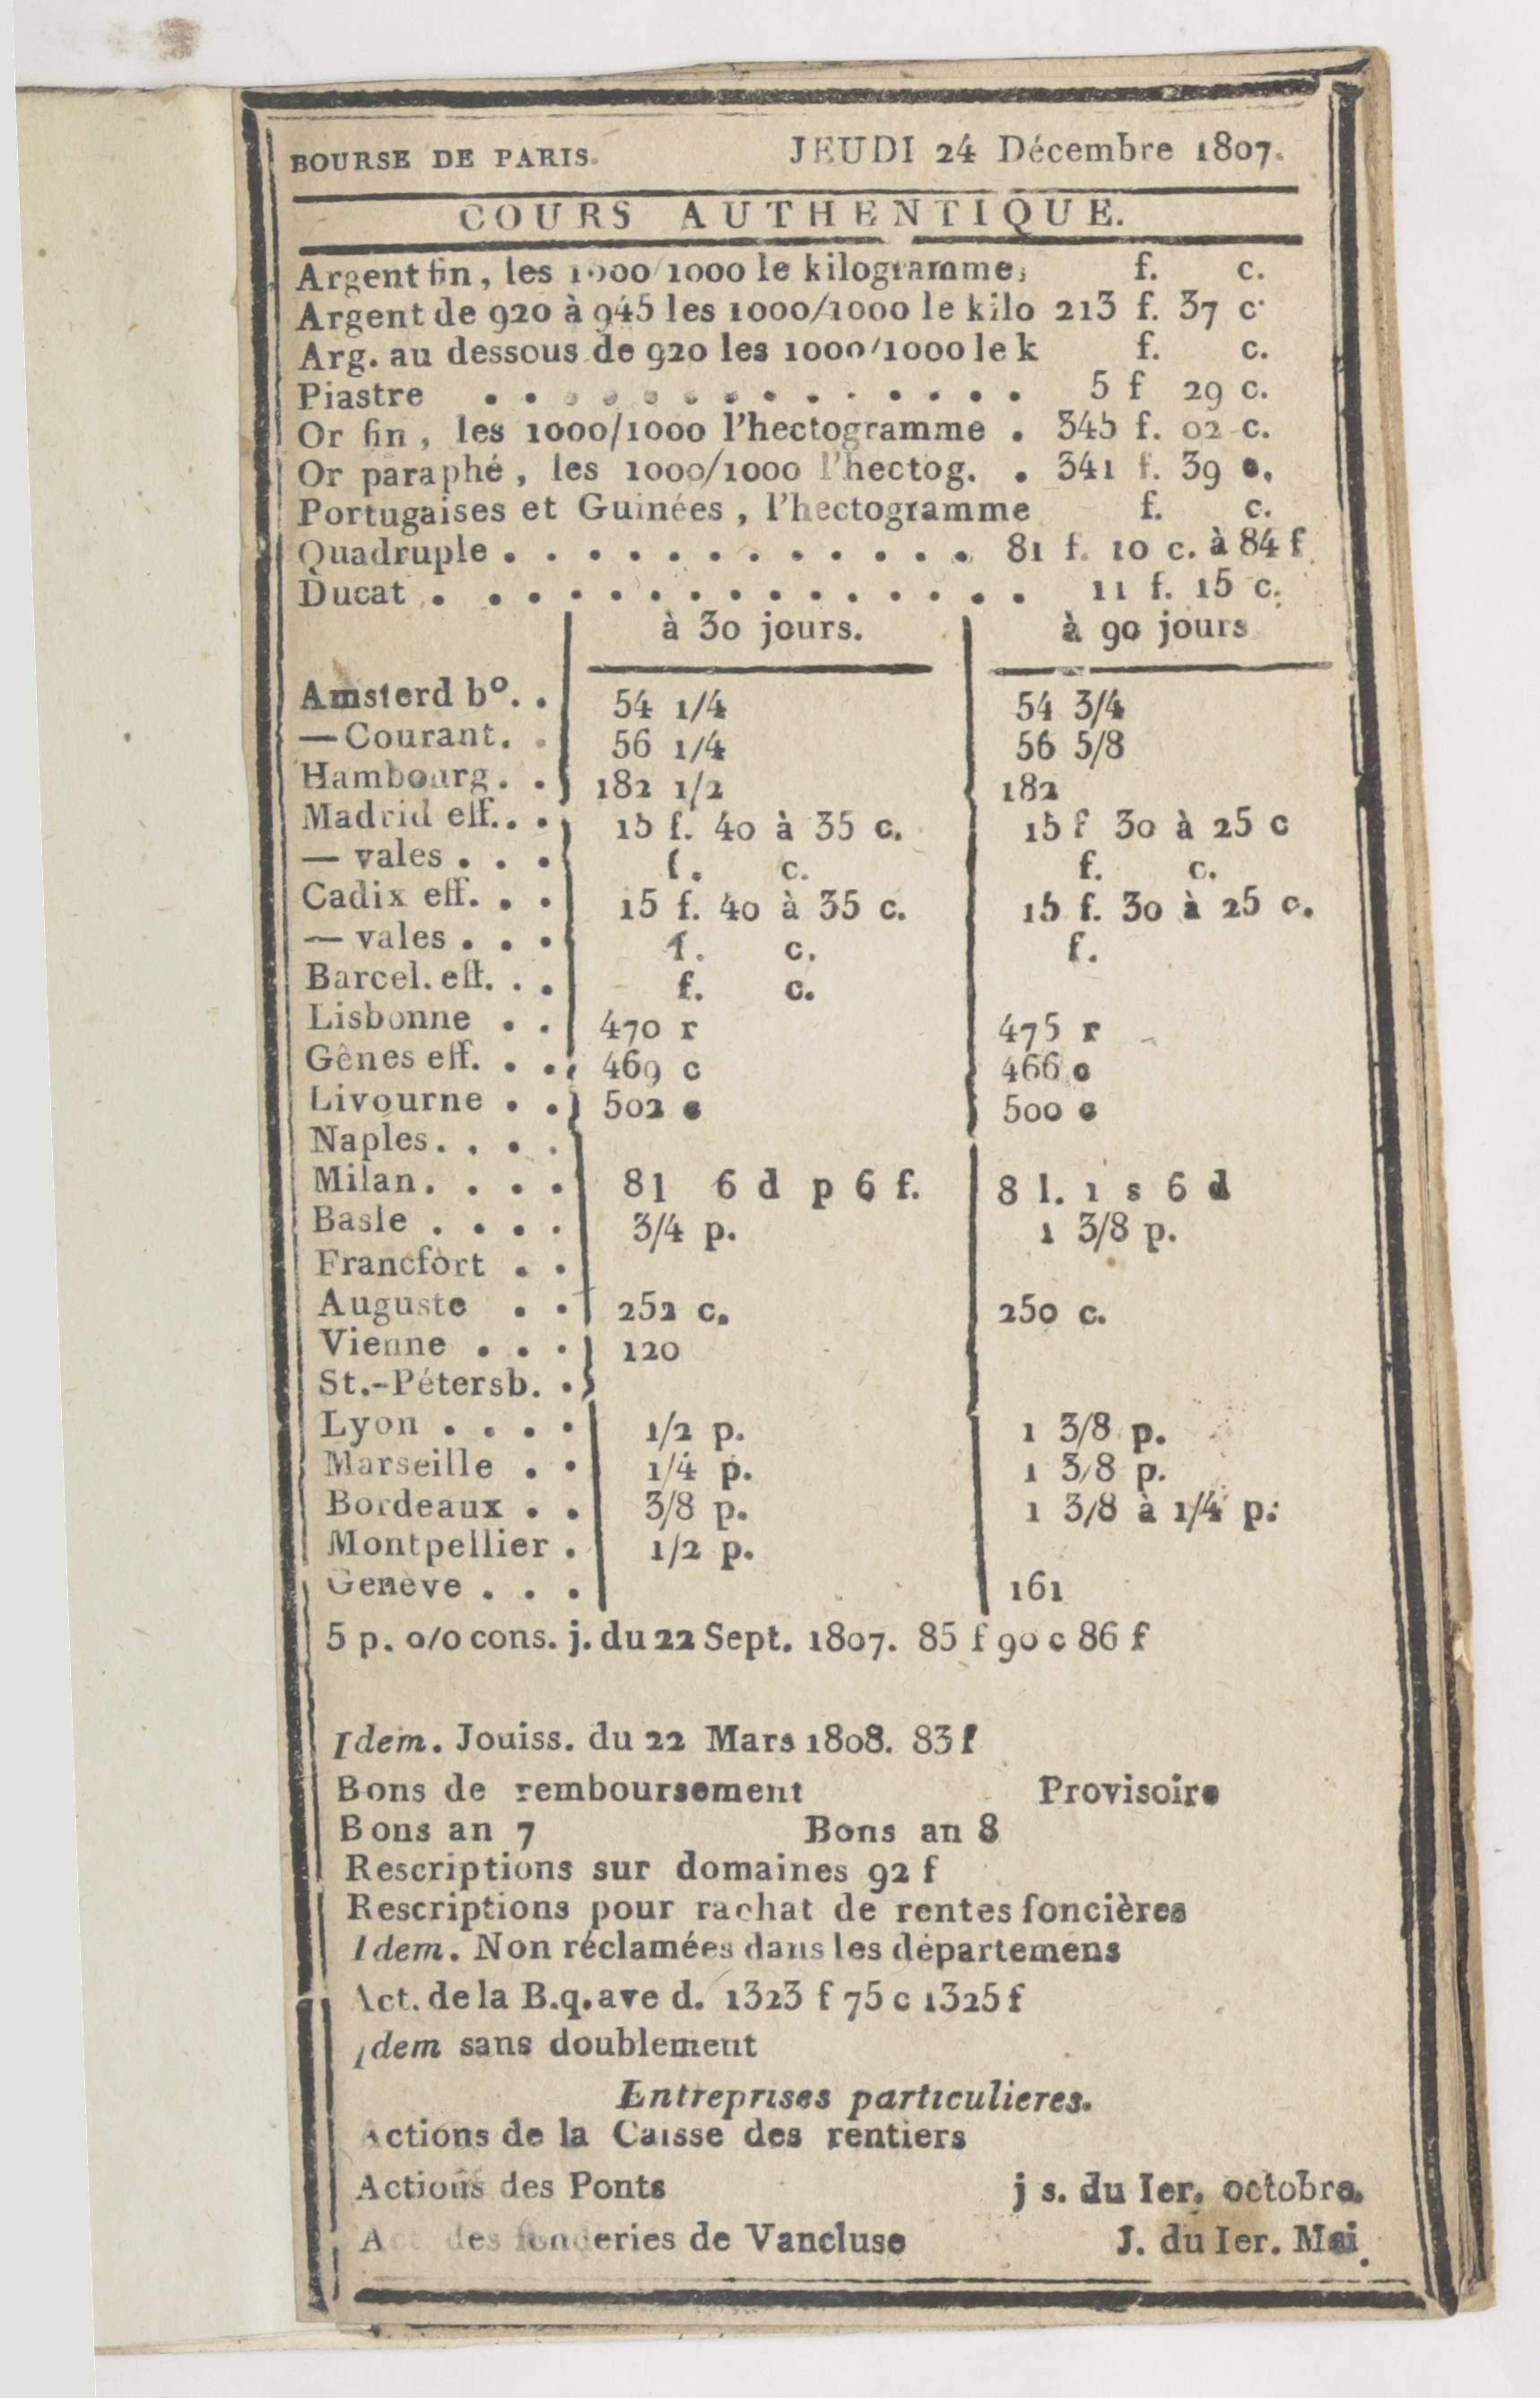 BOURSE DE PARIS. JEUDI 24 Décembre 1807.
COURS AUTHENTIQUE.
Argent fin, les 1000/1000 le kilogramme, f. c.
Argent de 920 à 945 les 1000/1000 le kilo 213 f. 37 c.
Arg. au dessous de 920 les 1000/1000 le k f. c.
Piastre . . . . . . . . . . . . . . 5 f 29 c.
Or fin, les 1000/1000 l'hectogramme . 345 f. 02 c.
Or paraphé, les 1000/1000 l'hectog. . 341 f. 39 c.
Portugaises et Guinées, l'hectogramme f. c.
Quadruple . . . . . . . . . . . . 81 f. 10 c. à 84 f
Ducat . . . . . . . . . . . . . . . 11 f. 15 c.
à 30 jours. à 90 jours
Amsterd bº. . 54 1/4 54 3/4
—Courant. . 56 1/4 56 5/8
Hambourg. . 182 1/2 182
Madrid eff. . . 15 f. 40 à 35 c. 15 f 30 à 25 c
— vales . . . f. c. f. c.
Cadix eff. . . 15 f. 40 à 35 c. 15 f. 30 à 25 c.
— vales . . . f. c. f.
Barcel. eff. . . f. c.
Lisbonne . . 470 r 475 r
Gênes eff. . . 469 c 466 c
Livourne . . 502 c 500 c
Naples. . . .
Milan. . . . 8 l 6 d p 6 f. 8 l. 1 s 6 d
Basle . . . . 3/4 p. 1 3/8 p.
Francfort . .
Auguste . . 252 c. 250 c.
Vienne . . . 120
St.-Pétersb. .
Lyon . . . . 1/2 p. 1 3/8 p.
Marseille . . 1/4 p. 1 3/8 p.
Bordeaux . . 3/8 p. 1 3/8 à 1/4 p.
Montpellier . 1/2 p.
Genève . . . 161
5 p. 0/0 cons. j. du 22 Sept. 1807. 85 f 90 c 86 f
Idem. Jouiss. du 22 Mars 1808. 83 f
Bons de remboursement Provisoire
Bons an 7 Bons an 8
Rescriptions sur domaines 92 f
Rescriptions pour rachat de rentes foncières
Idem. Non réclamées dans les départemens
Act. de la B.q. ave d. 1323 f 75 c 1325 f
Idem sans doublement
Entreprises particulieres.
Actions de la Caisse des rentiers
Actions des Ponts j s. du Ier. octobre.
Act des fonderies de Vancluse J. du Ier. Mai.